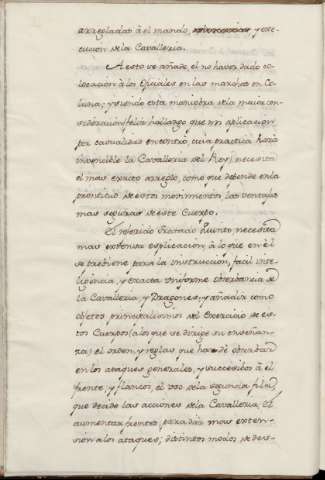 arregladas à el mando, y exe-
cucion dela Cavalleria.
A esto se añade el no haver dado co-
locacion à los Oficiales en las marchas en Co-
luna; y siendo esta maniobra dela maior con-
sideracion, hallazgo que mi aplicacion
por casualidad encontrò, cuia practica
invencible la Cavalleria del Rey, necesita
el mas exacto arreglo, como que depende en la
prontitud de estos movimientos las ventajas
mas seguras de este Cuerpo.
El referido Tratado quinto, necesita
mas extensa explicacion, à lo que en èl
se previene para la instruccion, facil inte-
ligencia, y exacta uniforme observancia de
la Cavalleria, y Dragones, y añadir como
objetos principalissimos del Exercicio de es-
tos Cuerpos (à los que se dirige su enseñan-
za) el orden, y reglas que han de observar
en los ataques generales, y sucesibos à el
frente, y flancos, el uso dela segunda fila,
que decide las acciones dela Cavalleria, el
aumentar frentes para dar mas exten-
sion à los ataques; distintos modos de des-